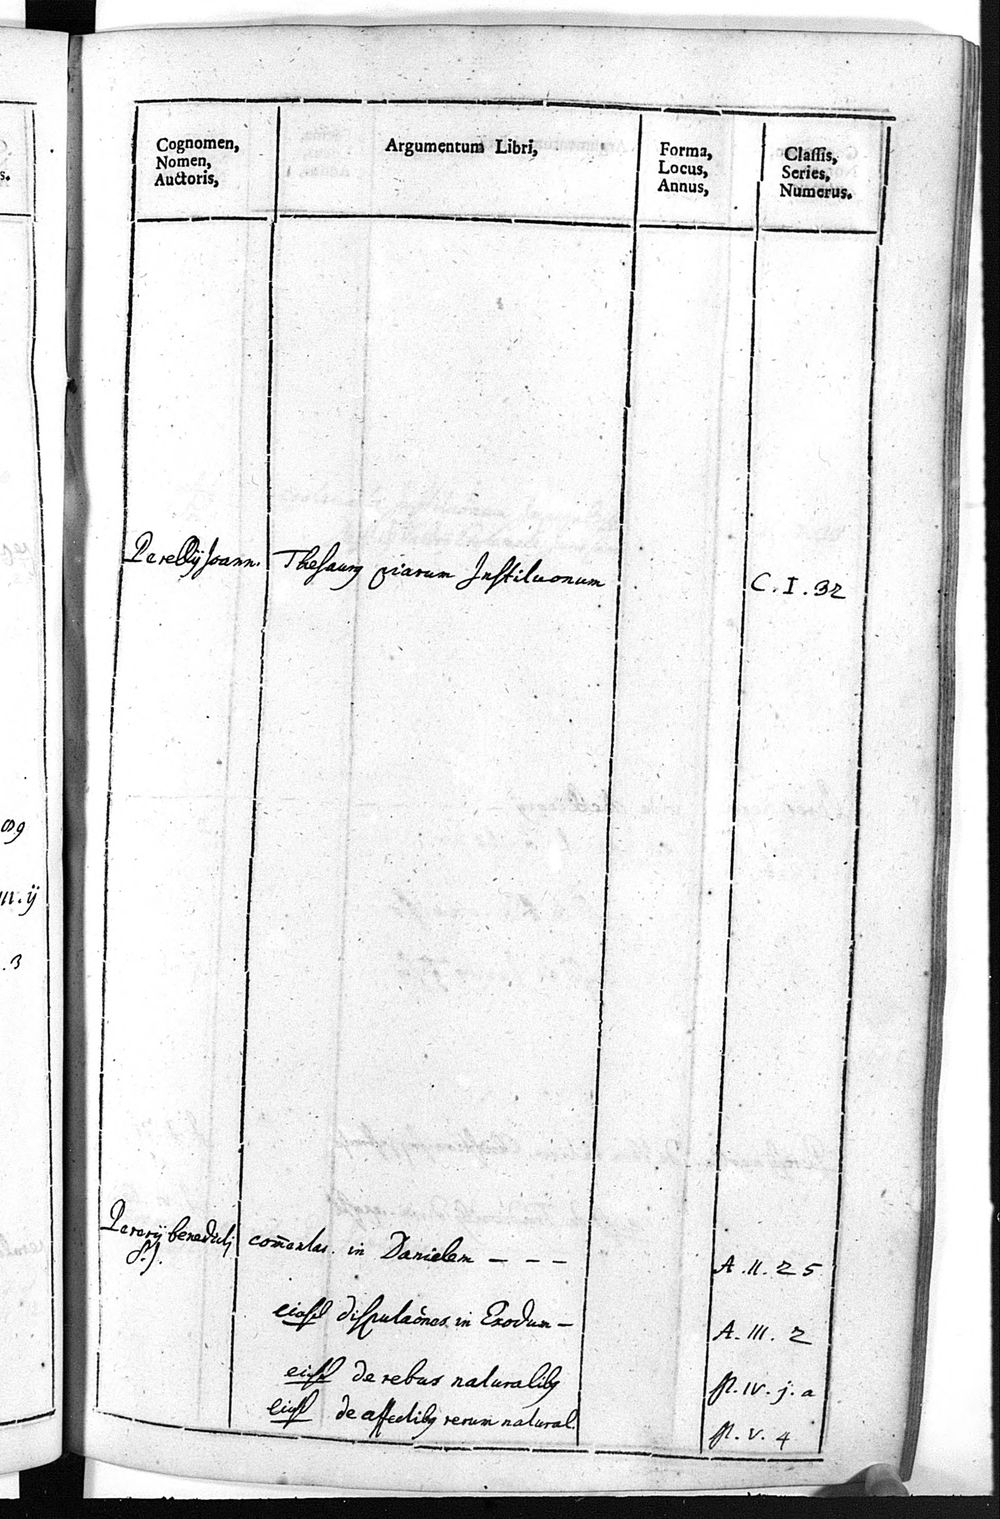 Cognomen,
Nomen,
Auctoris,
Argumentum Libri,
Forma,
Locus,
Annus,
Classis,
Series,
Numerus.
Perellÿ Joann. Thesaurg piarum Institu͠onum C. I. 32
Pererÿ benedicti com̄entar. in Danielem - - - A. II. 25
S.J.
eiusd disputac̄ones in Exodum - A. III. 2
eiusd de rebus naturalibg IV. j. a
eiusd de affectibg rerum natural. V. 4
09
III. ÿ
. 3
s.